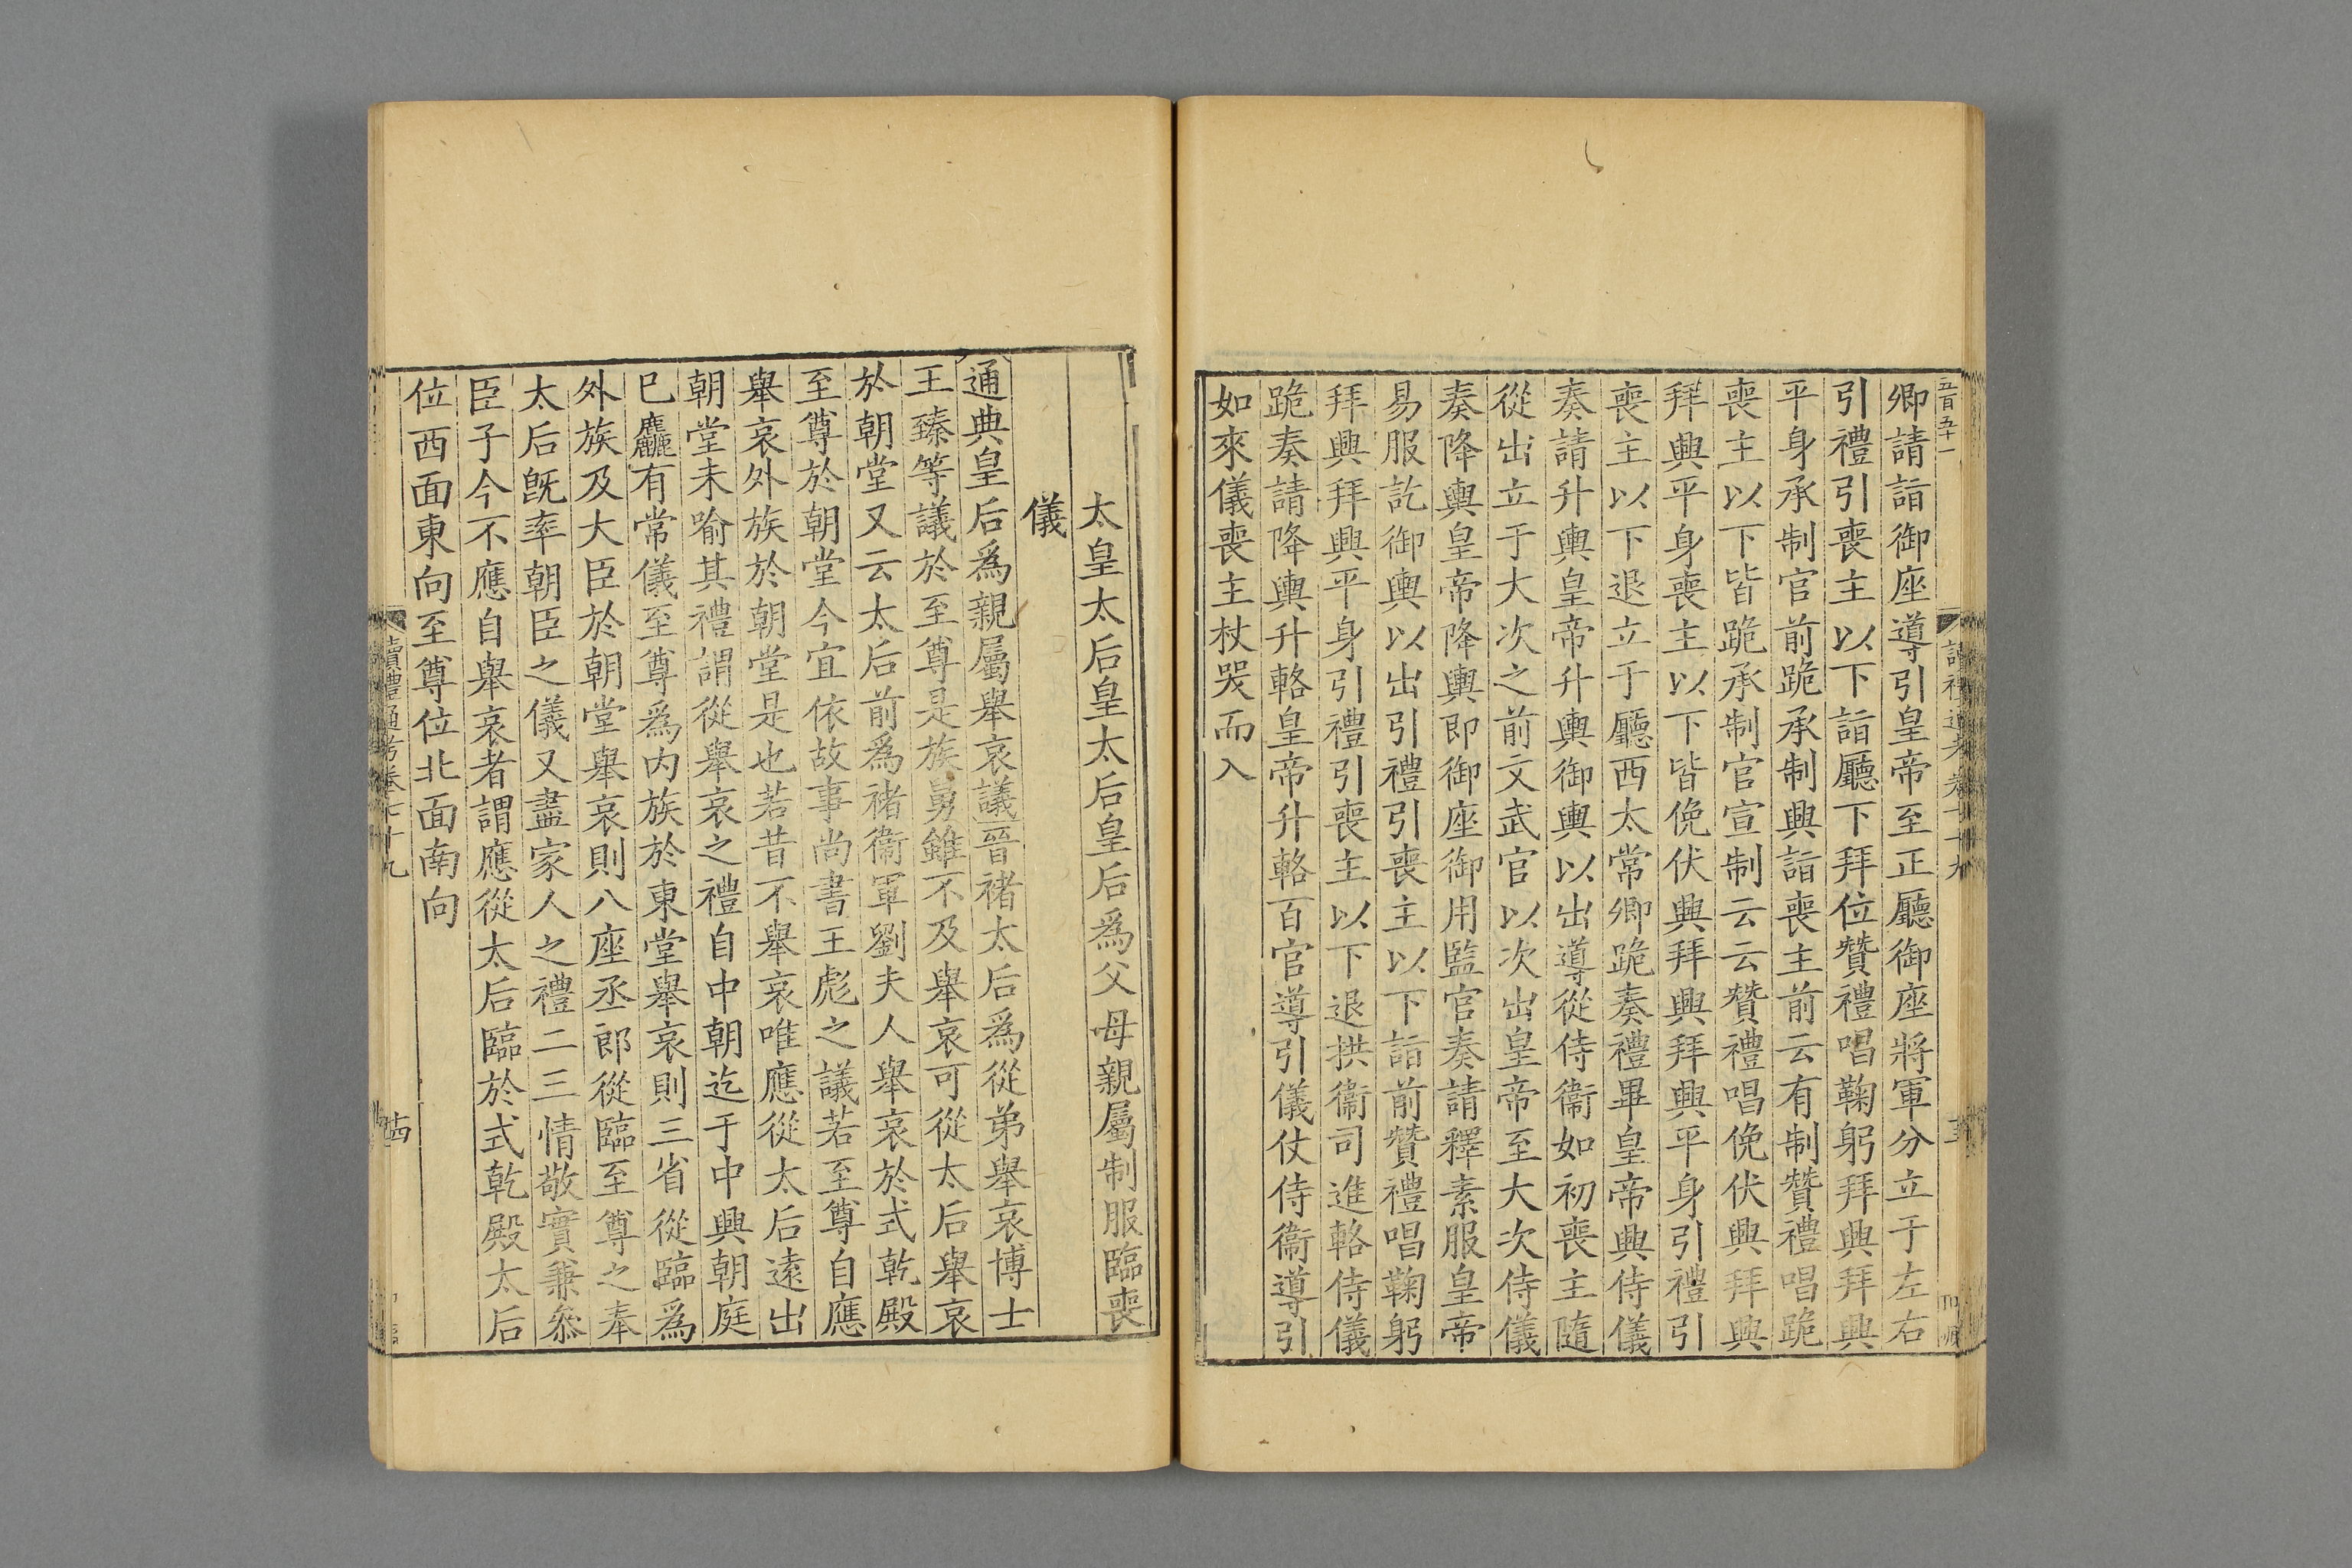 五百五十一
卿請詣御座導引皇帝至正廳御座將軍分立于左右
引禮引喪主以下詣廳下拜位贊禮唱鞠躬拜興拜興
平身承制官前跪承制興詣喪主前云有制贊禮唱跪
喪主以下皆跪承制官宣制云云贊禮唱俛伏興拜興
拜興平身喪主以下皆俛伏興拜興拜興平身引禮引
喪主以下退立于廳西太常卿跪奏禮畢皇帝興侍儀
奏請升輿皇帝升輿御輿以出導從侍衞如初喪主隨
從出立于大次之前文武官以次出皇帝至大次侍儀
奏降輿皇帝降輿即御座御用監官奏請釋素服皇帝
易服訖御輿以出引禮引喪主以下詣前贊禮唱鞠躬
拜興拜興平身引禮引喪主以下退拱衞司進輅侍儀
跪奏請降輿升輅皇帝升輅百官導引儀仗侍衞導引
如來儀喪主杖哭而入
太皇太后皇太后皇后爲父母親屬制服臨喪
儀
通典皇后爲親屬舉哀議晉褚太后爲從弟舉哀博士
王臻等議於至尊是族舅雖不及舉哀可從太后舉哀
於朝堂又云太后前爲褚衞軍劉夫人舉哀於式乾殿
至尊於朝堂今宜依故事尚書王彪之議若至尊自應
舉哀外族於朝堂是也若昔不舉哀唯應從太后遠出
朝堂未喻其禮謂從舉哀之禮自中朝迄于中興朝庭
已麤有常儀至尊爲内族於東堂舉哀則三省從臨爲
外族及大臣於朝堂舉哀則八座丞郎從臨至尊之奉
太后旣率朝臣之儀又盡家人之禮二三情敬實兼叅
臣子今不應自舉哀者謂應從太后臨於式乾殿太后
位西面東向至尊位北面南向
讀禮通考卷七十九
十四